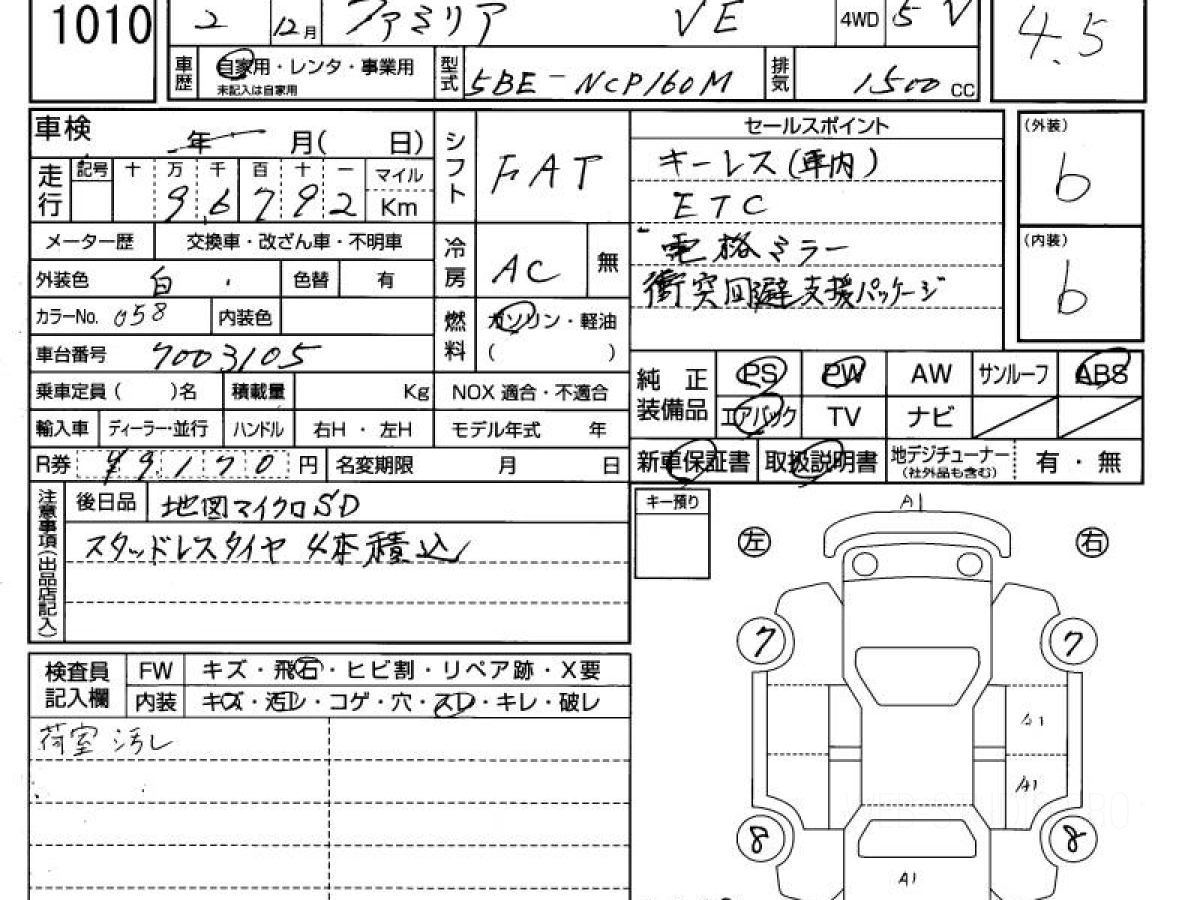 1010
2 12月 ファミリア VE 4WD 5V 4.5
車歴 自家用・レンタ・事業用 未記入は自家用
型式 5BE-NCP160M 排気 1500 CC
車検 年 月( 日)
走行 記号 十 万 千 百 十 一 マイル
9 6 7 9 2 Km
シフト FAT
メーター歴 交換車・改ざん車・不明車
外装色 白 色替 有
冷房 AC 無
カラーNo. 058 内装色
燃料 ガソリン・軽油
( )
車台番号 7003105
乗車定員( )名 積載量 Kg NOX 適合・不適合
輸入車 ディーラー・並行 ハンドル 右H・左H モデル年式 年
R券 ¥9,170 円 名変期限 月 日
セールスポイント
キーレス(車内)
ETC
電格ミラー
衝突回避支援パッケージ
(外装)
6
(内装)
6
純正装備品 PS PW AW サンルーフ ABS
エアバック TV ナビ
新車保証書 取扱説明書 地デジチューナー (社外品も含む) 有・無
注意事項(出品店記入) 後日品 地図マイクロSD
スタッドレスタイヤ 4本積込
検査員記入欄 FW キズ・飛石・ヒビ割・リペア跡・X要
内装 キズ・汚レ・コゲ・穴・スレ・キレ・破レ
荷室 汚レ
キー預り
A1
左 右
7 7
S1
A1
8 8
A1